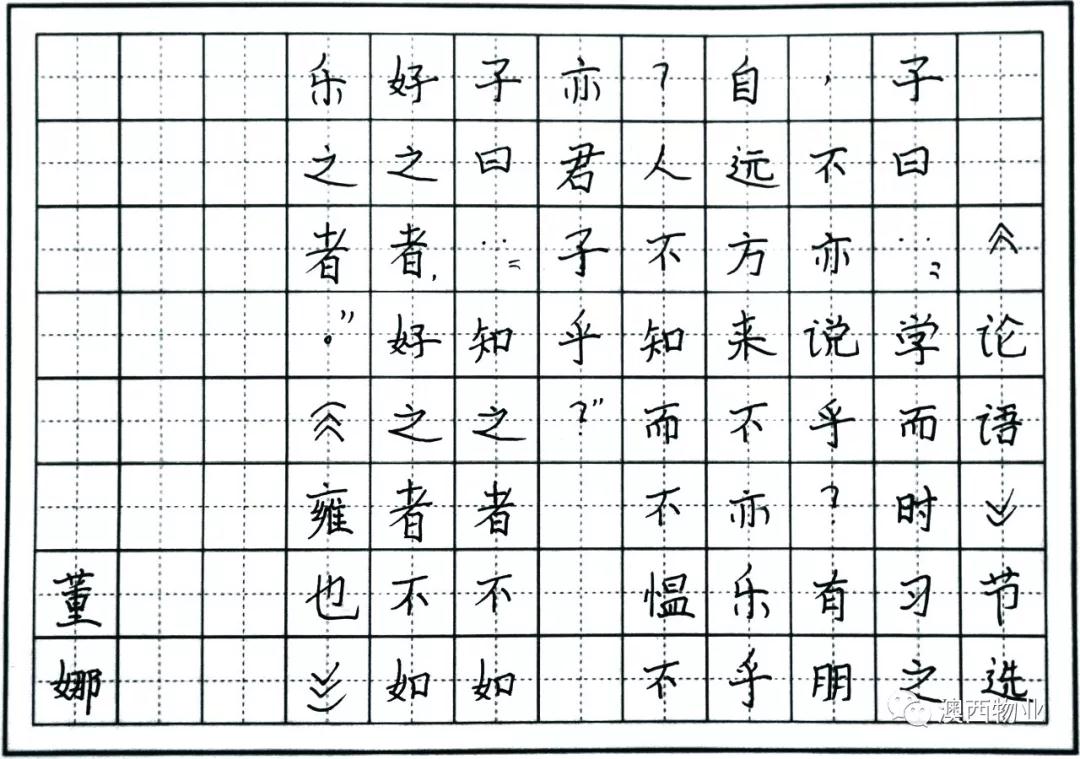 《论语》节选
子曰:“学而时习之
,不亦说乎?有朋
自远方来不亦乐乎
?人不知而不愠不
亦君子乎?”
子曰:“知之者不如
好之者,好之者不如
乐之者。”《雍也》
董娜
澳西物业